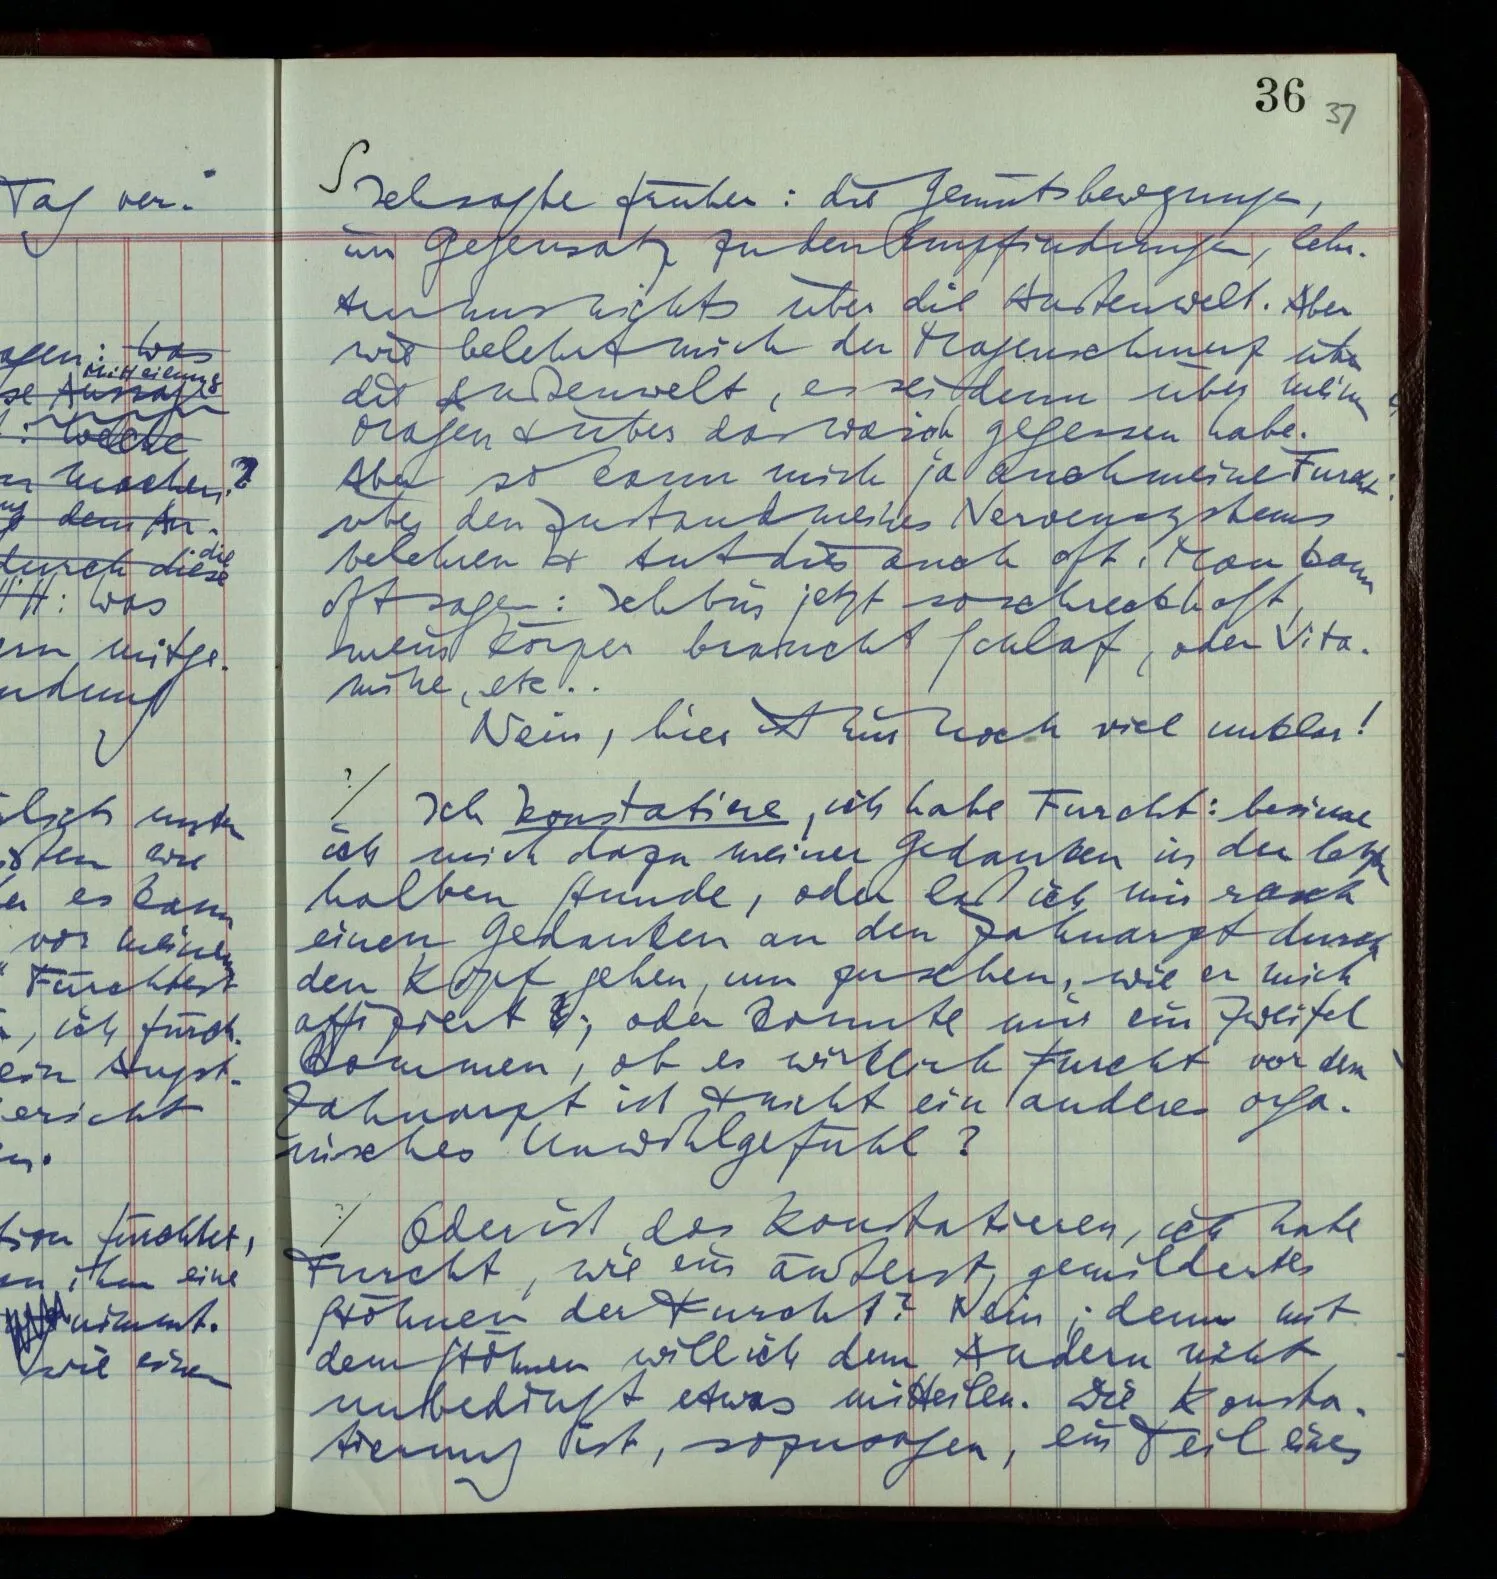 36 37
Tag ver-
agen: was
Mitteilung
se Aussage
: welche
machen?
dem An-
die
durch diese
H: was
ern mitge-
ndung
unter
wie
er es kann
vor meinen
Fürchtest
, ich fürch-
ein Angst-
ericht
tion fürchtet,
ihm eine
nimmt.
wie einen
∫ Ich sagte früher: die Gemütsbewegungen,
im Gegensatz zu den Empfindungen, leh-
ren uns nichts über die Außenwelt. Aber
wie belehrt mich der Magenschmerz über
die Außenwelt, es sei denn über meinen
Magen & über das was ich gegessen habe.
Aber so kann mich ja auch meine Furcht
über den Zustand meines Nervensystems
belehren & tut dies auch oft. Man kann
oft sagen: Ich bin jetzt so schreckhaft,
mein Körper braucht Schlaf, oder Vita-
mine, etc..
Nein, hier ist mir noch viel unklar!
?/ Ich konstatiere, ich habe Furcht: besinne
ich mich dazu meiner Gedanken in der letzten
halben Stunde, oder laß ich mir rasch
einen Gedanken an den Zahnarzt durch
den Kopf gehen, um zu sehen, wie er mich
affiziert; oder konnte mir ein Zweifel
kommen, ob es wirklich Furcht vor dem
Zahnarzt ist & nicht ein anderes orga-
nisches Unwohlgefühl?
?/ Oder ist das Konstatieren, ich habe
Furcht, wie ein äußerst gemildertes
Stöhnen der Furcht? Nein; denn mit
dem Stöhnen will ich dem Andern nicht
unbedingt etwas mitteilen. Die Konsta-
tierung ist, sozusagen, ein Teil eines